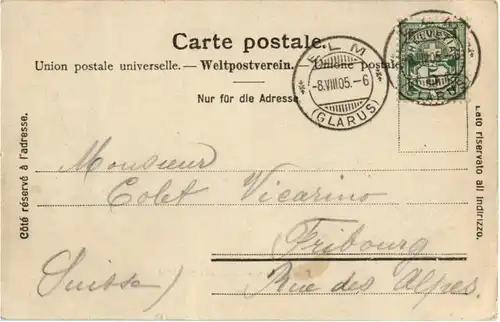 Carte postale.
Union postale universelle. — Weltpostverein. — Unione postale
Nur für die Adresse.
ELM
-8.VIII.05.-6
(GLARUS)
HELVETIA
(GLARUS)
Côté réservé à l'adresse.
Lato riservato all indirizzo.
Monsieur
Colet Vicarino
Fribourg
Suisse) Rue des Alpes.